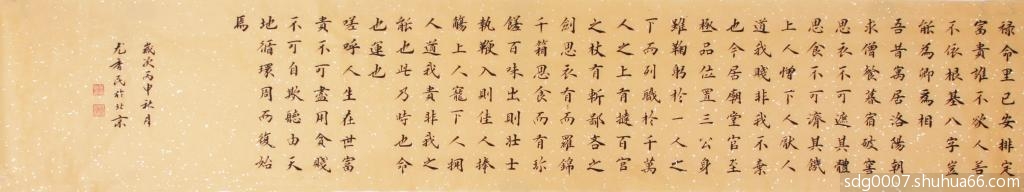 禄命里已安排定
富貴誰不欲人若
不依根基八字豈
能為卿為相
吾昔寓居洛陽朝
求僧餐暮宿破窰
思衣不可遮其體
思食不可濟其饑
上人憎下人猒人
道我賤非我不棄
也今居廟堂官至
極品位置三公身
雖鞠躬於一人之
下而列職於千萬
人之上有撻百官
之杖有斬鄙吝之
劍思衣而有羅錦
千箱思食而有珍
饈百味出則壯士
執鞭入則佳人捧
觴上人寵下人擁
人道我貴非我之
能也此乃時也命
也運也
嗟呼人生在世富
貴不可盡用貪賤
不可自欺聽由天
地循環周而復始
焉
歲次丙申秋月
尤孝民於北京
sdg0007.shuhua66.com